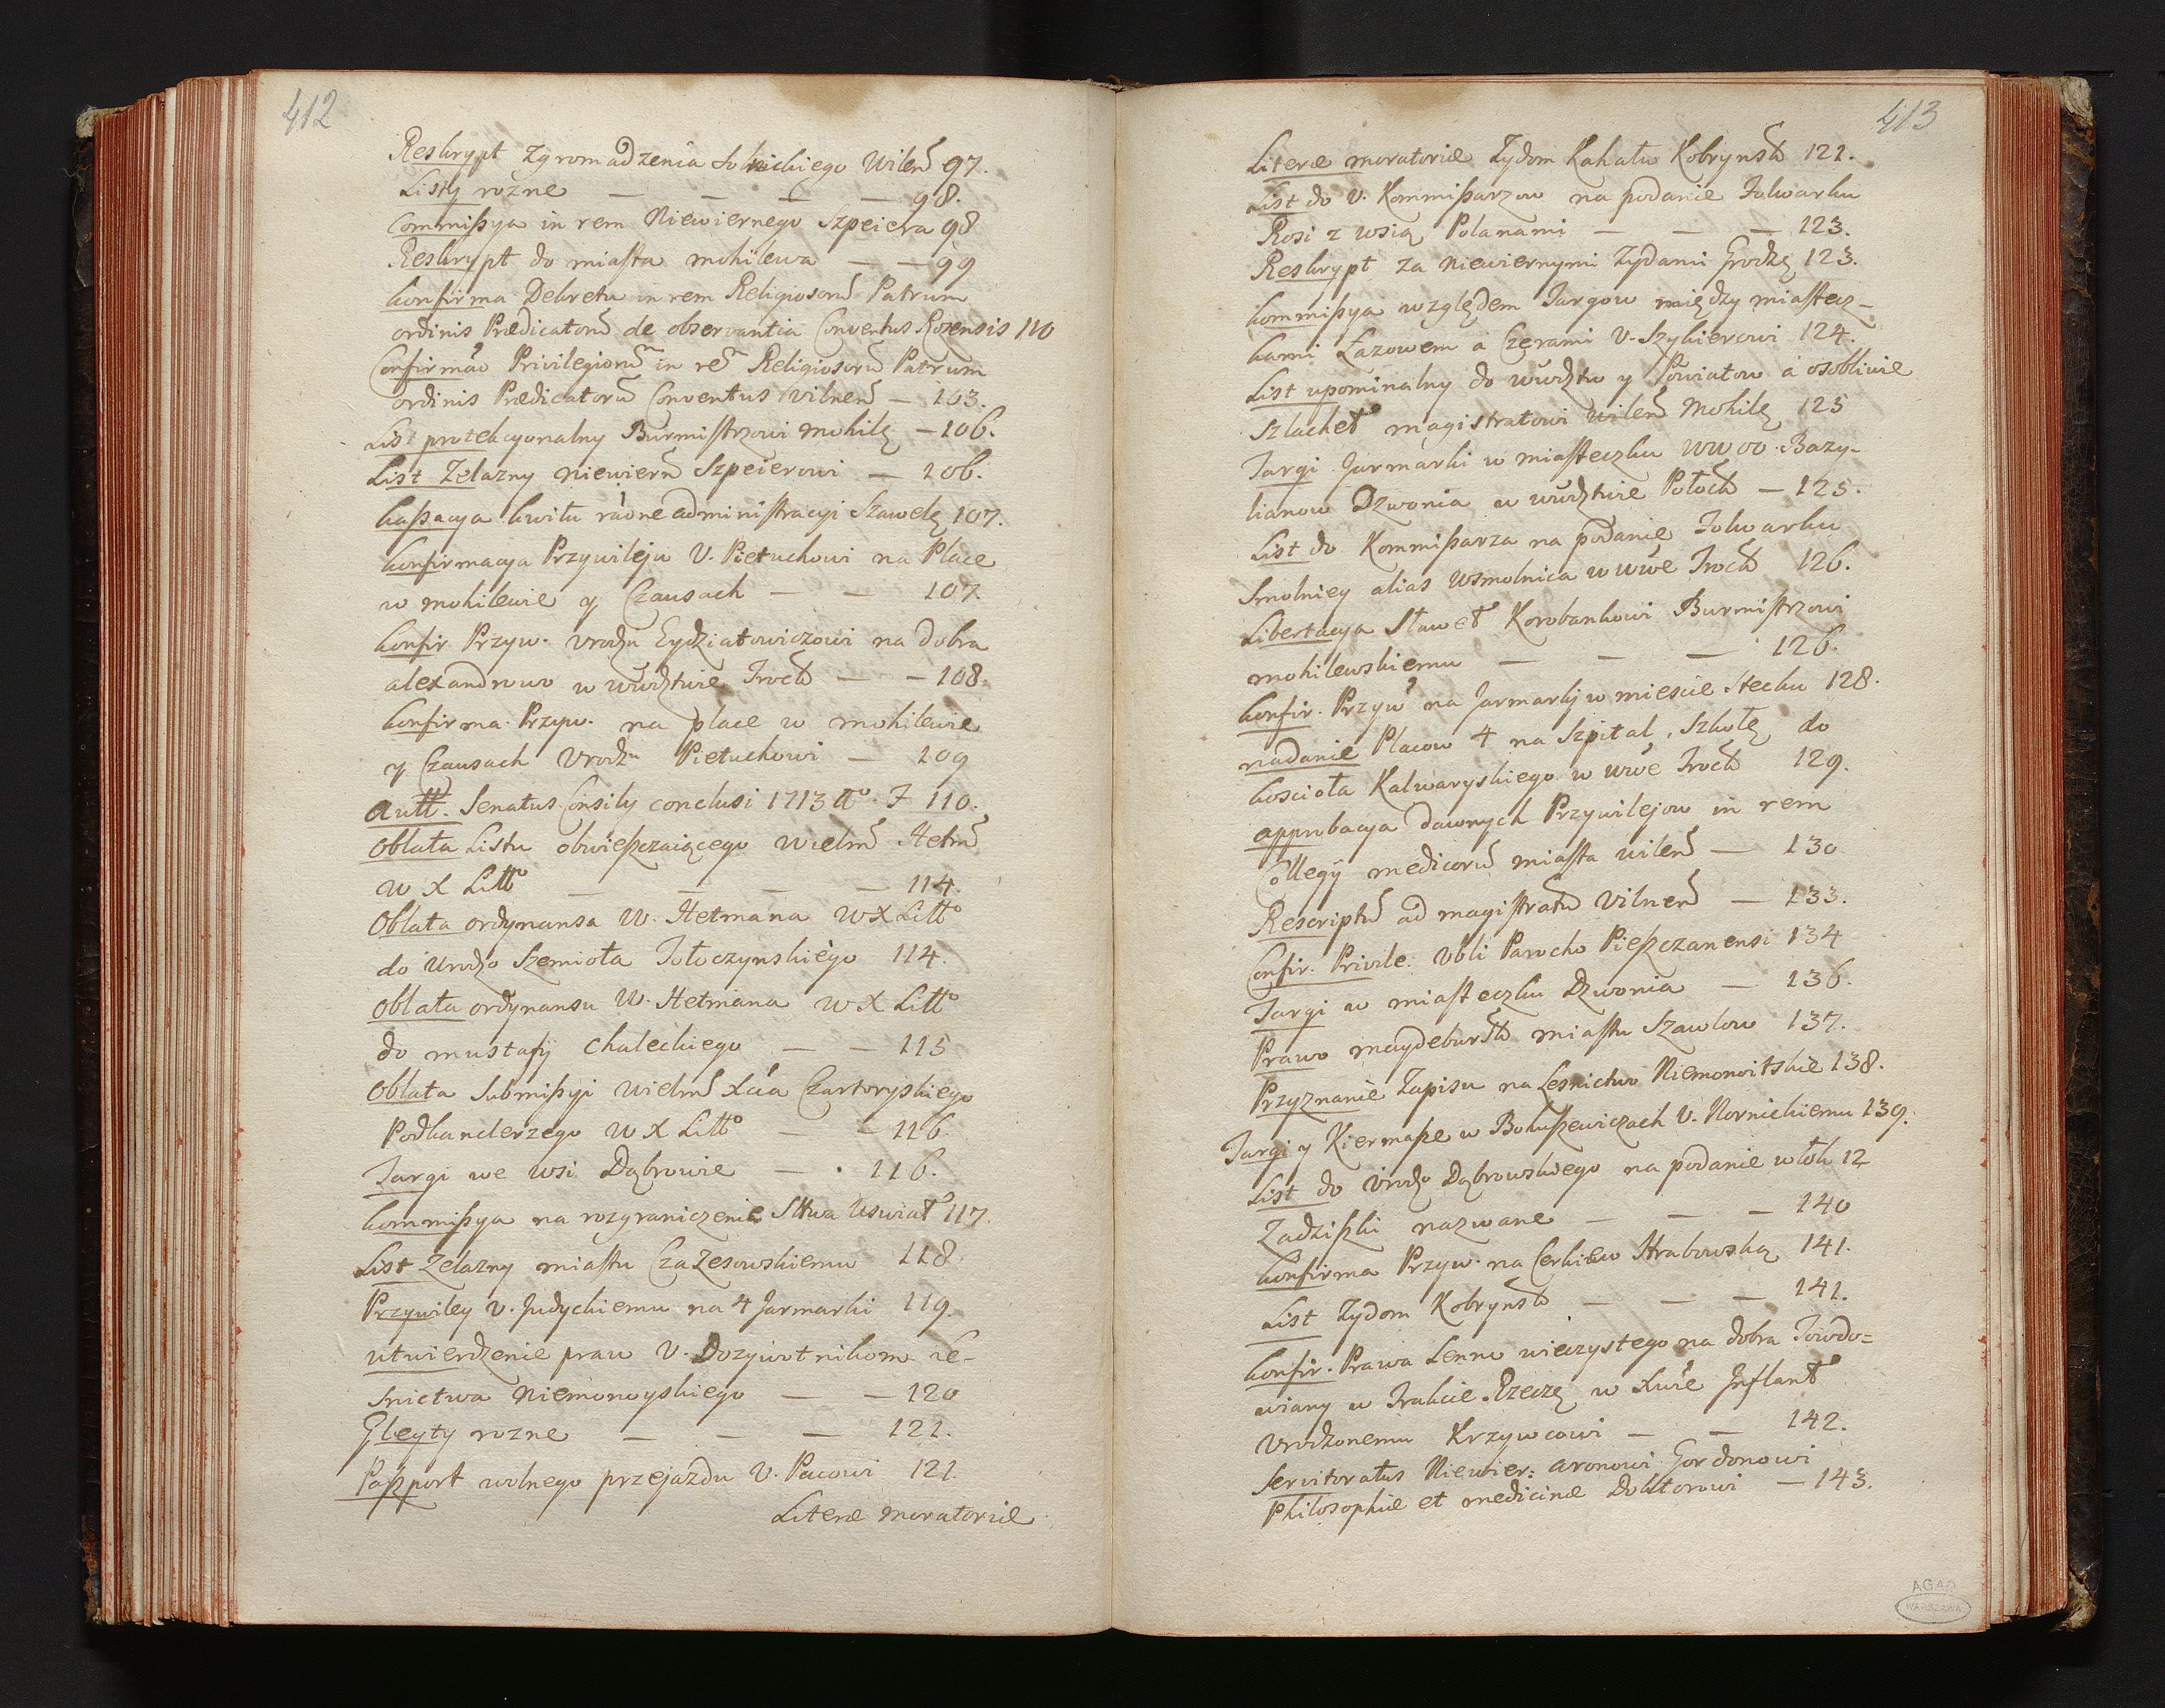 412
Reskrypt Zgromadzenia Solnickiego Wileń 97.
Listy rożne — — — — 98.
Commißya in rem Niewiernego Szpeiera 98
Reskrypt do miasta mohilewa — — 99
konfirma Dekretu in rem Religiosorũ Patrum
ordinis Prædicatorũ de observantia Conventus Rozensis 110
Confirmão Privilegiorũ in rẽ Religiosorũ Patrum
ordinis Prædicatorũ Conventus Vilneñ — 103.
List protekcyonalny Burmistrzowi mohilę — 106.
List Zelazny niewierñ Szpeierowi — 106.
kaßacya kwitu rãõne administracyi Szawelę 107.
konfirmacya Przywileju V. Pietuchowi na Place
w mohilewie y Czausach — — 107.
konfir. Przyw. Vrodzu Eydziatowiczowi na dobra
alexandrowo w wwdztwie Trock — — 108.
konfirma. Przyw. na place w mohilewie
y Czausach Vrodzu Pietuchowi — 109
Autt. Senatus Consily conclusi 1713 Ao. F 110.
Oblata Listu obwießczaiącego Wielm Hetm
W X Litto — — — — 114.
Oblata ordynansa W. Hetmana W X Litto
do Urodzo Szemiota Tołoczynskiego 114.
Oblata ordynansu W. Hetmana W X Litto
do mustafy Chaleckiego — — 115
Oblata Submißyi Wielm Xcia Czartoryskiego
Podkanclerzego W X Litto — — 116.
Targi we wsi Dąbrowie — . 116.
kommißya na rozgraniczenie Sttwa Uswiat 117.
List Zelazny miastu Czazesowskiemu 118.
Przywiley V. Judyckiemu na 4 Jarmarki 119.
utwierdzenie praw V. Dozywotnikom Le-
snictwa Niemonoyskiego — — 120
Gleyty rozne — — — 121.
Paßport wolnego przejazdu V. Pacowi 121.
Literæ moratoriæ
413
Literæ moratoriæ Zydom Kahału Kobryńsk 121.
List do V. Kommißarzow na podanie Folwarku
Rosi z wsią Polanami — — — 123.
Reskrypt za Niewiernymi Zydami Grodzę 123.
kommißya względem Targow między miastecz-
kami Łazowem a Czerami V. Szykierowi 124.
List upominalny do wwdztw y Powiatow a osobliwie
Szlachet magistratowi wileń Mohilę 125
Targi Jarmarki w miasteczku WW OO. Bazy-
lianow Dzwonia w wwdztwie Połock — 125.
List do Kommißarza na podanie Folwarku
Smolniey alias Wsmolnica w wwe Trock 126.
Libertacya Sławet Korobankowi Burmistrzowi
mohilewskiemu — — — 126.
konfir. Przyw na Jarmarky w miescie Stecku 128.
nadanie Placow 4 na Szpital, Szkołę do
kosciola Kalwaryskiego w wwe Trock 129.
approbacya dawnych Przywilejow in rem
Collegÿ medicorũ miasta wileñ — 130.
Rescriptũ ad magistratũ Vilneñ — 133.
Confir. Privile. Vbli Parocho Pießczanensi 134
Targi w miasteczku Dzwonia — 136.
Prawo maydeburk miastu Szawlow 137.
Przyznanie Zapisu na Lesnictwo Niemonoitskie 138.
Targi y Kiermaße w Bohußewiczach V. Nornickiemu 139.
List do Vrodzo Dąbrowskiego na podanie włok 12
Zadzißki nazwane — — — 140
konfirma Przyw. na Cerkiew Hrabowską 141.
List Zydom Kobryńsk — — — 141.
konfir. Prawa Lenne wieczystego na dobra Towdo=
wiany w Trakcie Rzeczę w Xwie Inflant
Vrodzonemu Krzywcowi — — 142.
Servitoratus Niewier: aronowi Gordonowi
Philosophiæ et medicinæ Doktorowi — 143.
AGAD
WARSZAWA